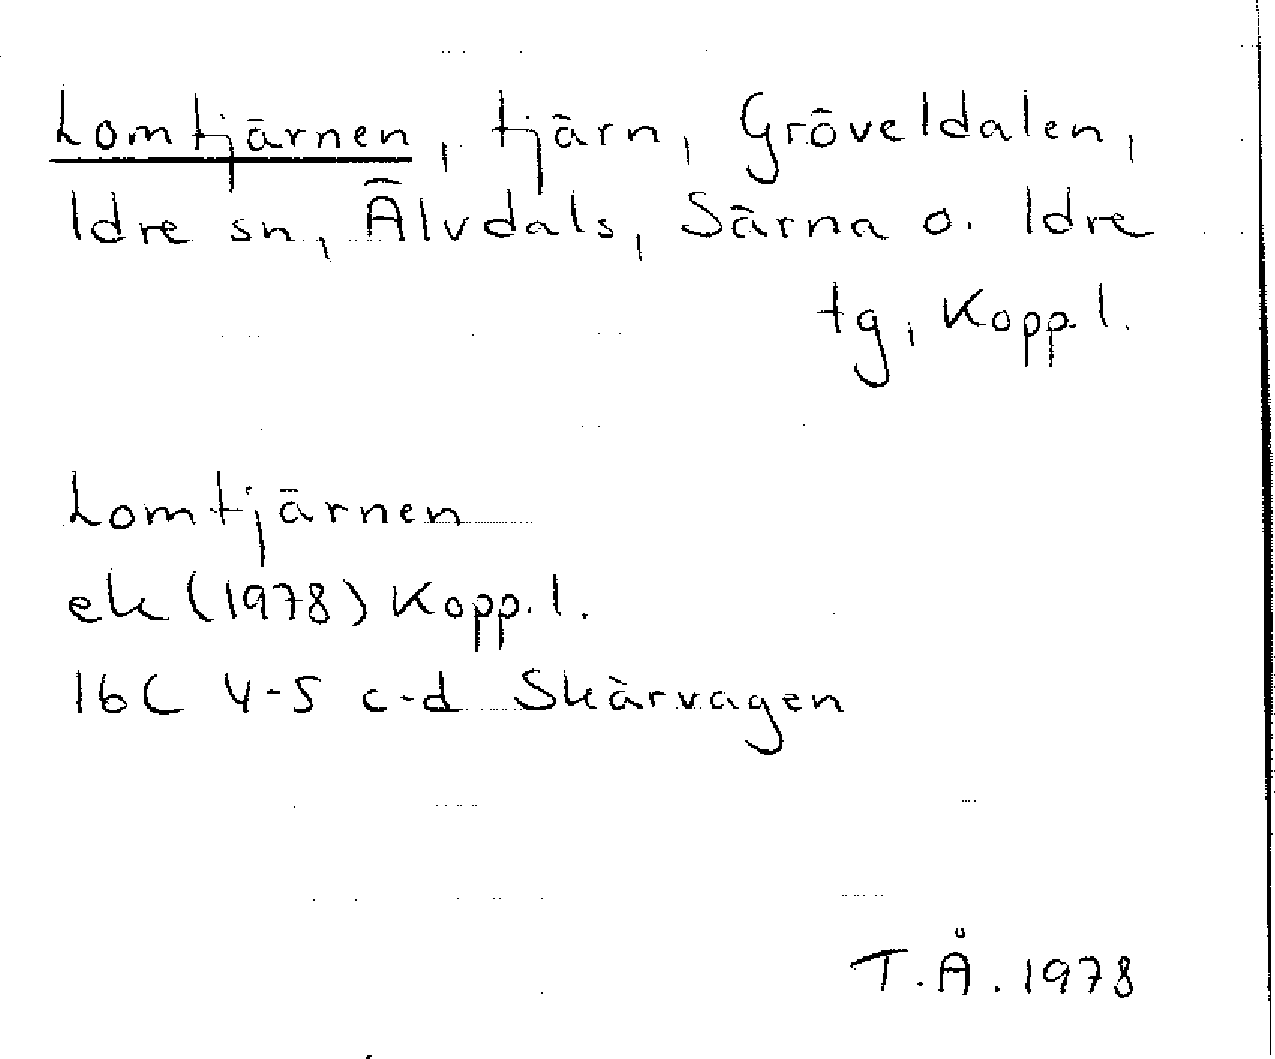 Lomtjärnen, tjärn, Gröveldalen,
Idre sn, Älvdals, Särna o. Idre
tg, Kopp.l.
Lomtjärnen
ek (1978) Kopp.l.
16C 4-5 c-d Skärvagen
T.Å. 1978